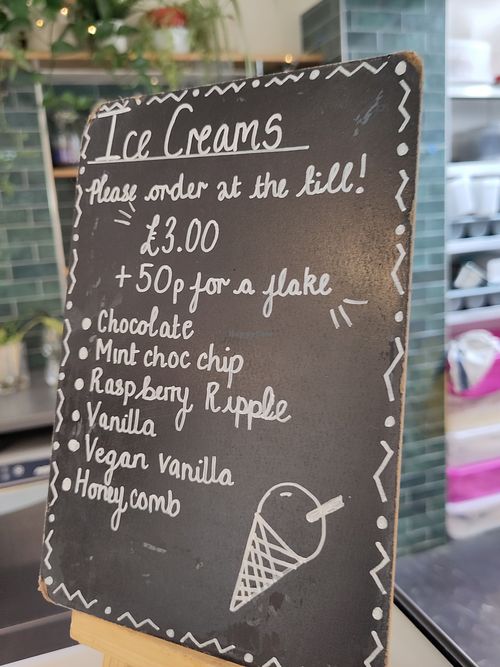 Ice Creams
Please order at the till!
£3.00
+50p for a flake
• Chocolate
• Mint choc chip
• Raspberry Ripple
• Vanilla
• Vegan vanilla
• Honeycomb